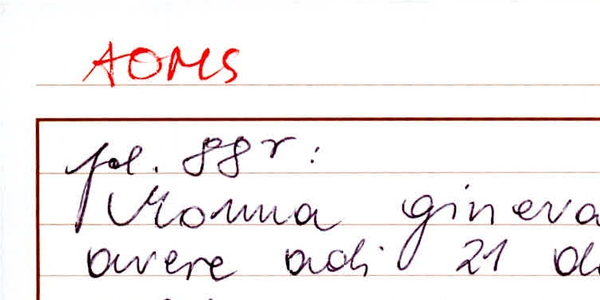 AOMS
fol. 88r:
Monna ginevra
avere adi 21 di